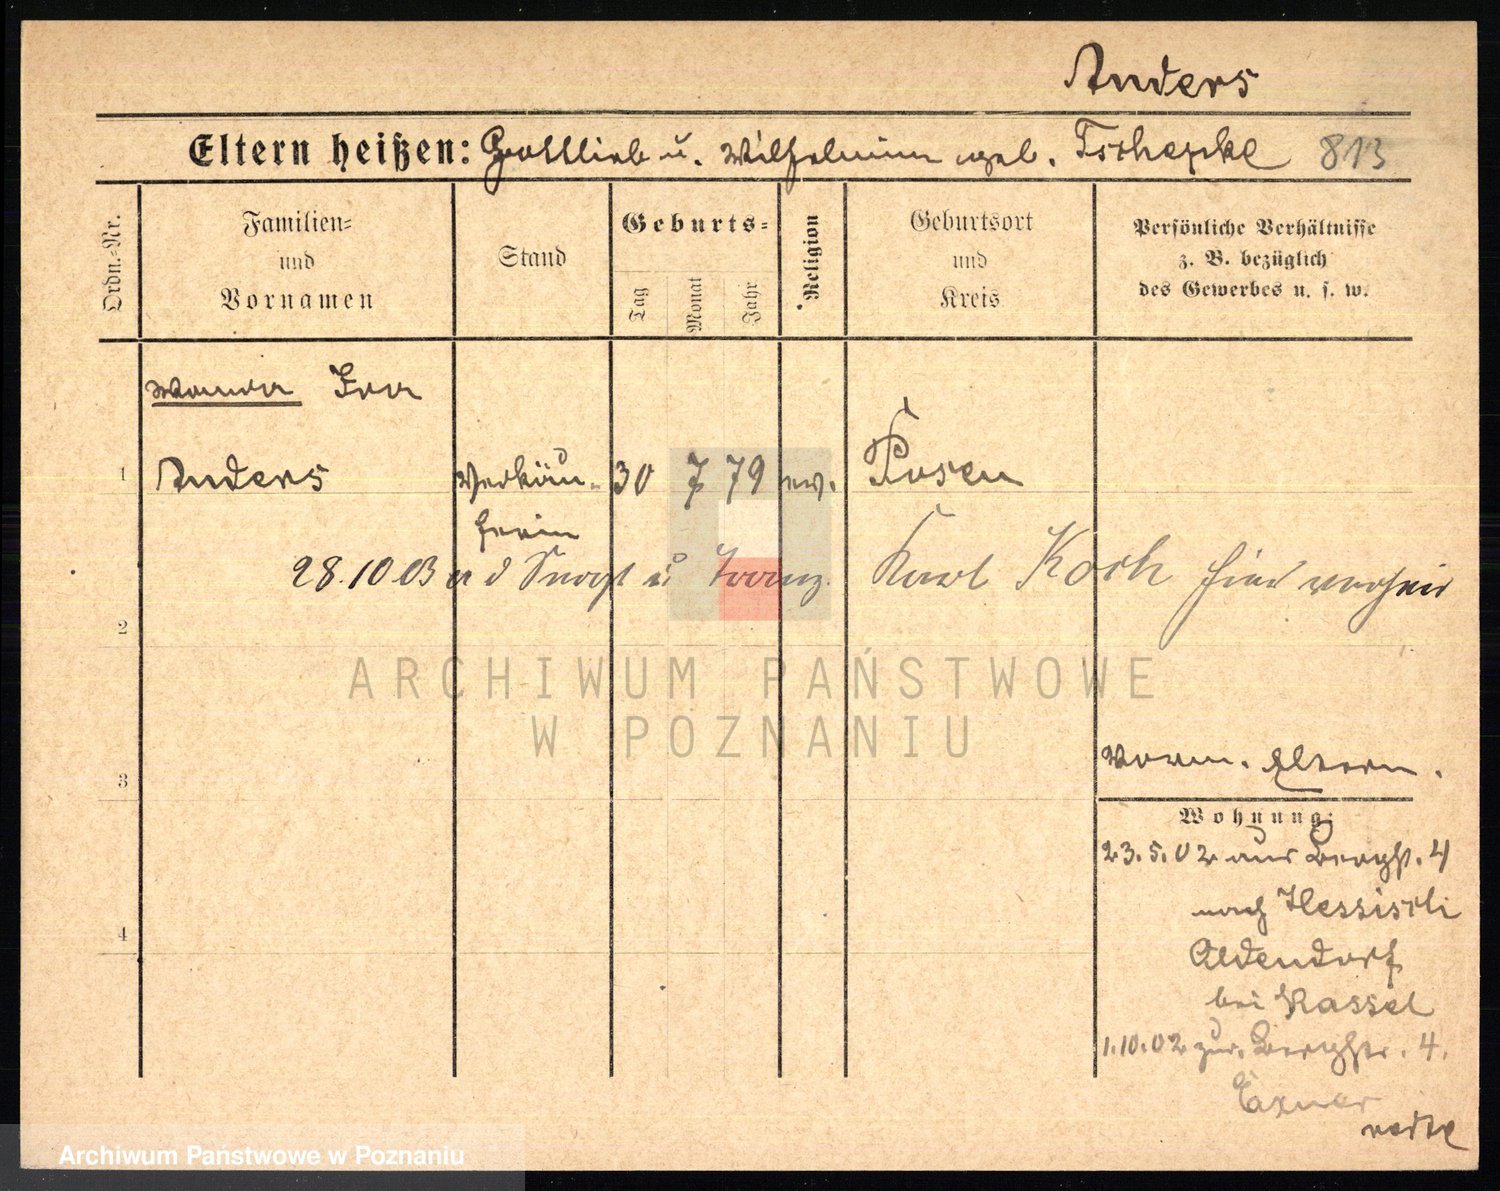 Anders
Eltern heißen: Gottlieb u. Wilhelmine geb. Tschepke 813
Ordn.-Nr.
Familien-
und
Vornamen
Stand
Geburts-
Tag
Monat
Jahr
Religion
Geburtsort
und
Kreis
Persönliche Verhältnisse
z. B. bezüglich
des Gewerbes u. s. w.
Wanda Ida
1 Anders Verkäu- 30 7 79 ev. Posen
ferin
28.10.03 a d u Franz. Karl Koch hier verheir
2
ARCHIWUM PAŃSTWOWE
W POZNANIU
3
Vorm. Eltern.
Wohnung:
23.5.02 aus Bergst. 4
nach Hessisch
4
Oldendorf
bei Kassel
1.10.02 zur. Bergstr. 4.
Exner
Archiwum Państwowe w Poznaniu